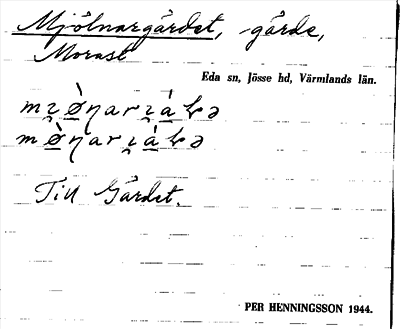 Mjölnargärdet, gärde,
Morast
Eda sn, Jösse hd, Värmlands län.
Till Gärdet.
PER HENNINGSSON 1944.